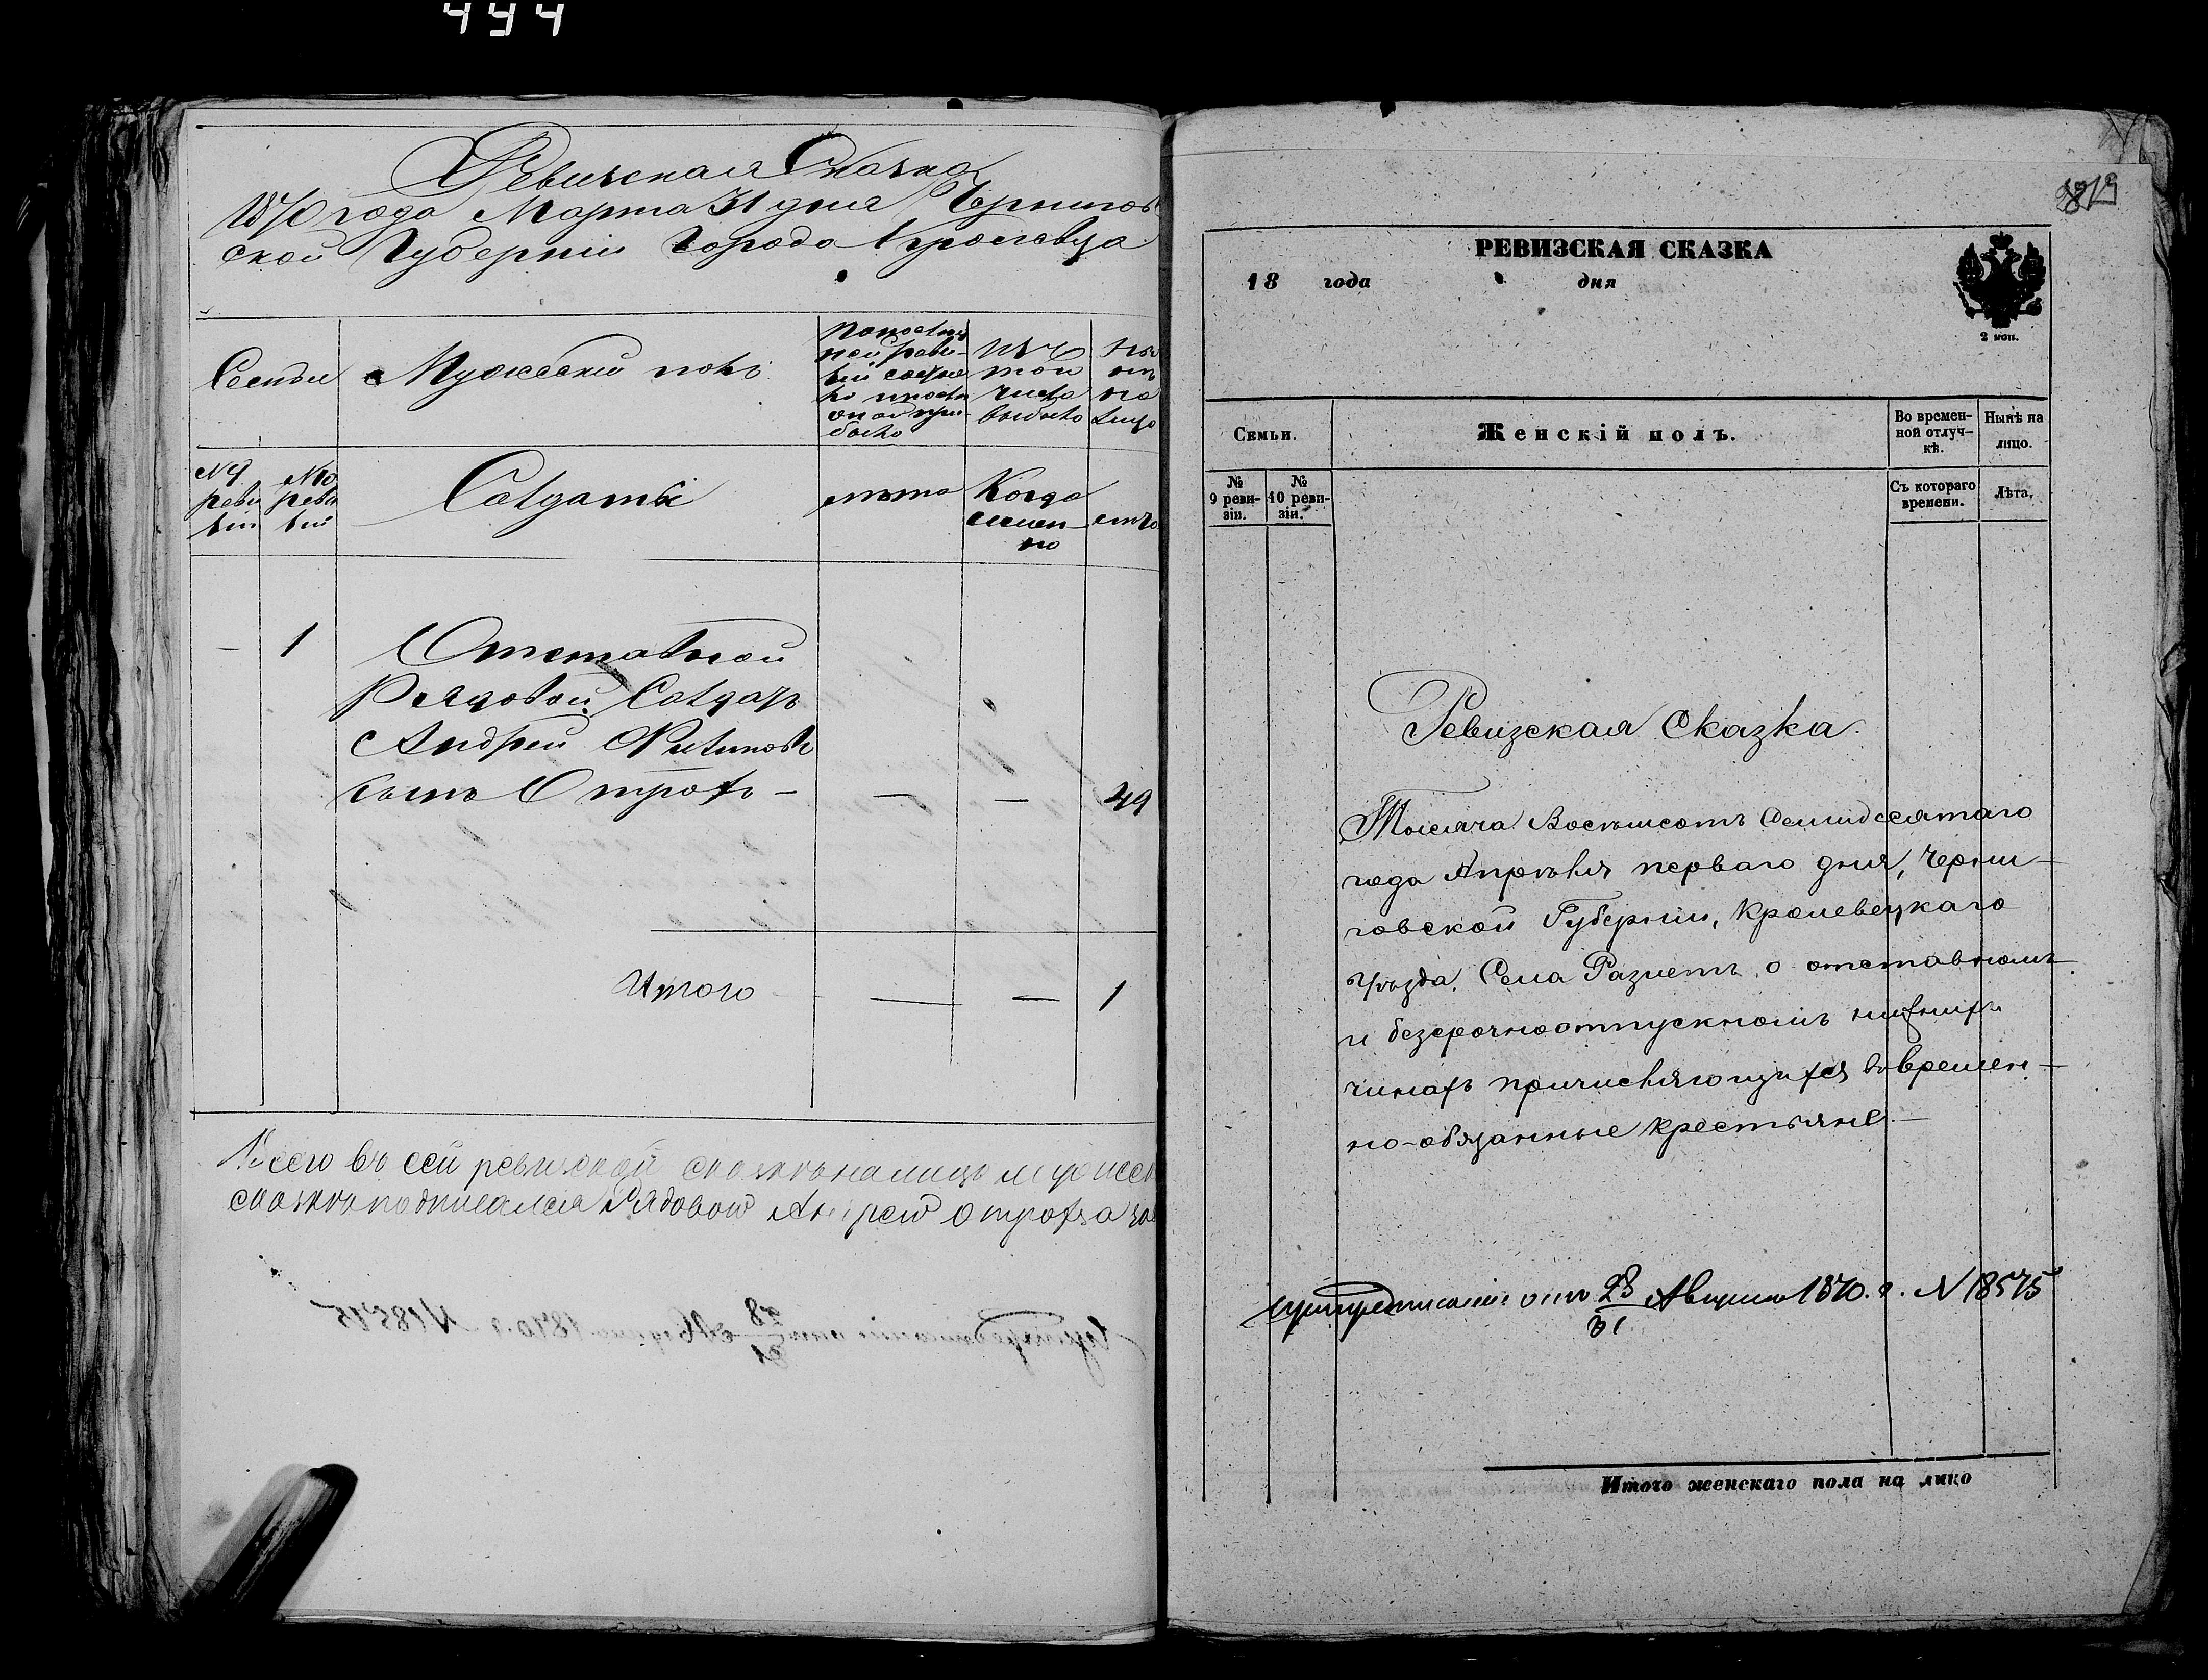 494
Ревизская Сказка
1870 года Марта 31 дня Чернигов
ской Губерніи города Кролевца
Семьи
Мужеской полъ
По послед
ней реви-
зіи состоя
ло и после
оной при-
было
Изъ
того
числа
выбыло
Ны
нѣ
на
лицо
№ 9
реви
зіи
№ 10
реви
зіи
Солдаты
лѣта
Когда
именно
лѣта
— 1 Отставной
Рядовой Солдатъ
Андрей Филиповъ
сынъ Отрохъ — — — 49
Итого — — 1
Всего въ сей ревизской сказкѣ на лицо
сказкѣ подписался Рядовой Андрей Отроха
2819
РЕВИЗСКАЯ СКАЗКА
18 года дня
2 коп.
Семьи.
Женскій полъ.
Во времен-
ной отлуч-
кѣ.
Нынѣ на
лицо.
№
9 реви-
зіи.
№
10 реви-
зіи.
Съ котораго
времени.
Лѣта.
Ревизская Сказка.
Тысяча Восемьсотъ Семидесятаго
года Апрѣля перваго дня, Черни-
говской Губерніи, Кролевецкаго
Уѣзда, Села Разлетъ, о отставномъ
и безсрочноотпускномъ нижнихъ
чинахъ причисляющихся во времен-
но-обязанные крестьяне.—
при предписаніи отъ 28/31 Августа 1870. г. № 18575
Итого женскаго пола на лицо